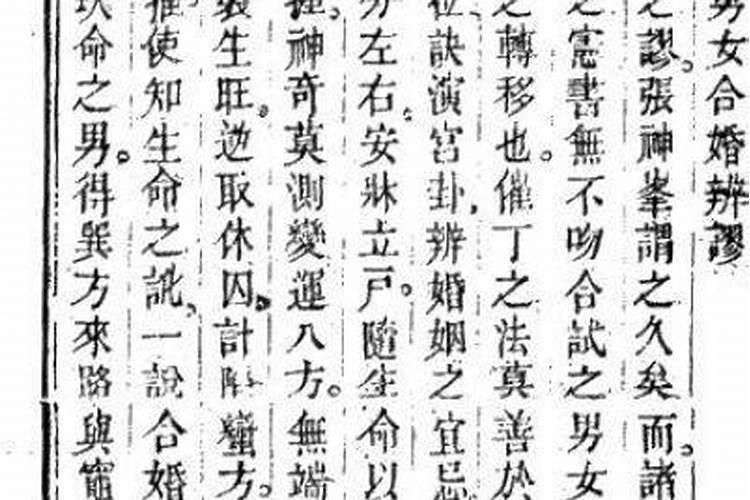 男女合婚辨謬
之謬。張神峯謂之久矣而。諸
之憲書無不吻合試之男女
之轉移也。催丁之法真善於
位訣演宮卦,辨婚姻之宜忌
分左右。安牀立戶。隨生命以
神奇莫測變運八方。無端
生旺。迯取休囚。計 蠻方。
使知生命之訛、一說合婚
命之男。得巽方來路與竈